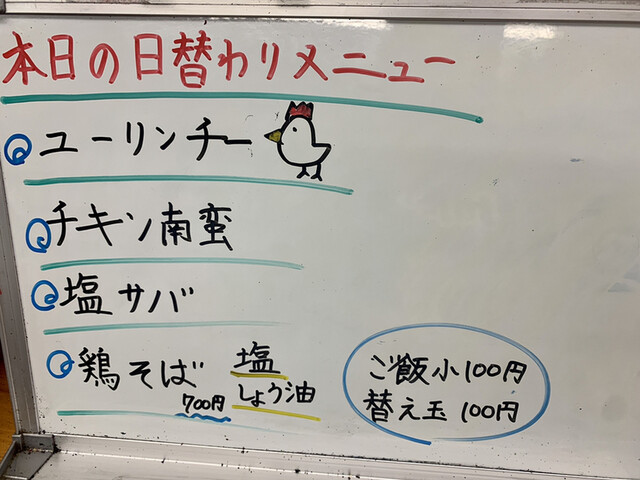 本日の日替わりメニュー
ユーリンチー
チキン南蛮
塩サバ
鶏そば 塩
700円 しょう油
ご飯小100円
替え玉 100円